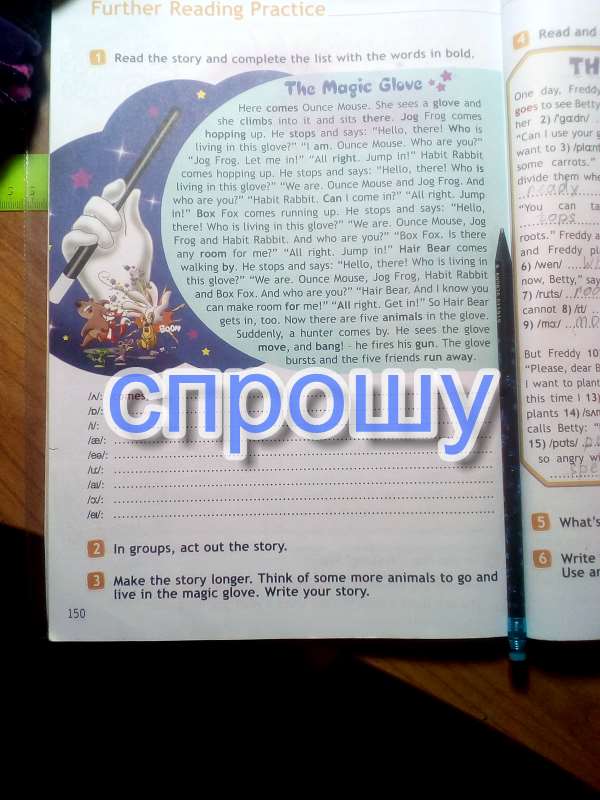 Further Reading Practice
1 Read the story and complete the list with the words in bold.
The Magic Glove
Here comes Ounce Mouse. She sees a glove and
she climbs into it and sits there. Jog Frog comes
hopping up. He stops and says: “Hello, there! Who is
living in this glove?” “I am. Ounce Mouse. Who are you?”
“Jog Frog. Let me in!” “All right. Jump in!” Habit Rabbit
comes hopping up. He stops and says: “Hello, there! Who is
living in this glove?” “We are. Ounce Mouse and Jog Frog. And
who are you?” “Habit Rabbit. Can I come in?” “All right. Jump
in!” Box Fox comes running up. He stops and says: “Hello,
there! Who is living in this glove?” “We are. Ounce Mouse, Jog
Frog and Habit Rabbit. And who are you?” “Box Fox. Is there
any room for me?” “All right. Jump in!” Hair Bear comes
walking by. He stops and says: “Hello, there! Who is living in
this glove?” “We are. Ounce Mouse, Jog Frog, Habit Rabbit
and Box Fox. And who are you?” “Hair Bear. And I know you
can make room for me!” “All right. Get in!” So Hair Bear
gets in, too. Now there are five animals in the glove.
Suddenly, a hunter comes by. He sees the glove
move, and bang! - he fires his gun. The glove
bursts and the five friends run away.
BOOM
/ʌ/: comes
/ɒ/:
/ɪ/:
/æ/:
/eə/:
/uː/:
/aɪ/:
/ɔː/:
/eɪ/:
спрошу
2 In groups, act out the story.
3 Make the story longer. Think of some more animals to go and
live in the magic glove. Write your story.
150
4 Read and
TH
One day, Freddy
goes to see Betty
her 2) /ˈgɑːdn/
“Can I use your g
want to 3) /plɑːnt
some carrots.”
divide them whe
ready
“You can ta
roots.” Freddy a
and Freddy pl
6) /wen/
now, Betty,” say
7) /ruːts/
cannot 8) /iːt/
9) /maɪ/
But Freddy 10)
“Please, dear B
I want to plant
this time I 13)
plants 14) /sʌm
calls Betty: “
15) /pɒts/
so angry wi
5 What's
6 Write
Use an